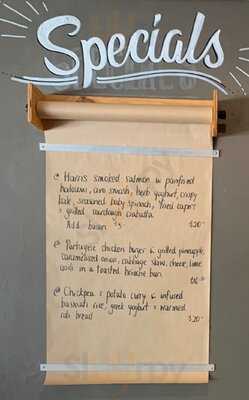 Specials
Harris smoked salmon w panfried
haloumi, avo smash, herb yoghurt, crispy
kale, seasoned baby spinach, fried capers
& grilled sourdough ciabatta
Add bacon $5 $20
Portugese chicken burger w grilled pineapple,
caramelised onion, cabbage slaw, cheese, lime
aioli in a toasted brioche bun.
Chickpea & potato curry w infused
basmati rice, greek yoghurt & warmed
roti bread $20